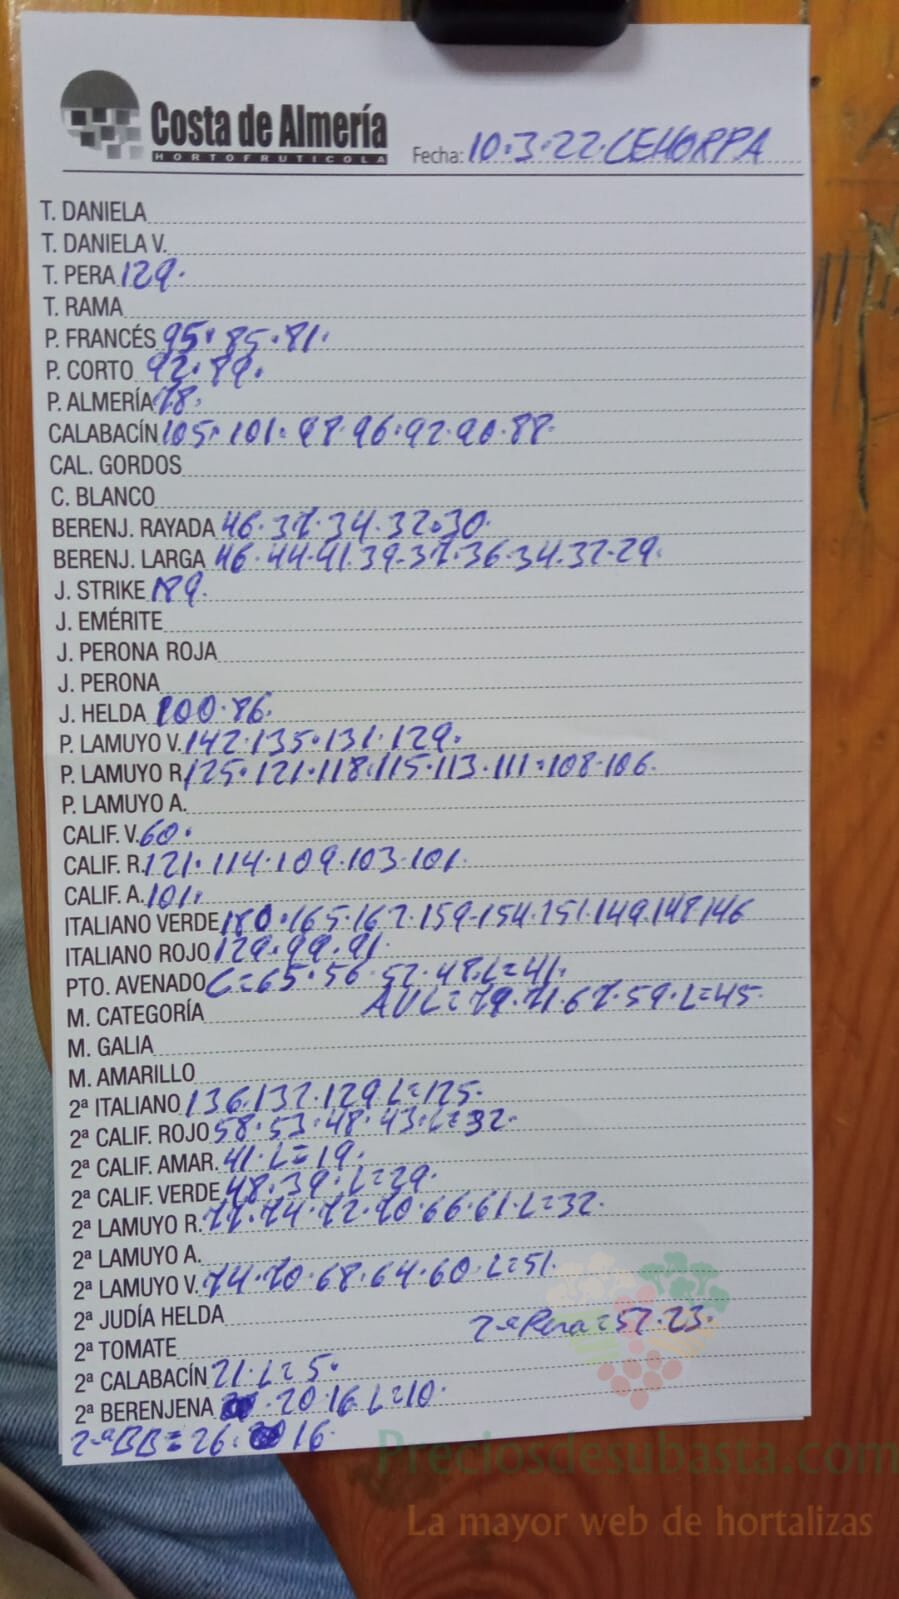 Costa de Almería
HORTOFRUTICOLA
Fecha: 10.3.22. CEHORPA
T. DANIELA
T. DANIELA V.
T. PERA 129.
T. RAMA
P. FRANCÉS 95. 85. 81.
P. CORTO 92. 89.
P. ALMERÍA 78.
CALABACÍN 105. 101. 98. 96. 92. 90. 88.
CAL. GORDOS
C. BLANCO
BERENJ. RAYADA 46. 37. 34. 32. 30.
BERENJ. LARGA 46. 44. 41. 39. 37. 36. 34. 32. 29.
J. STRIKE 189.
J. EMÉRITE
J. PERONA ROJA
J. PERONA
J. HELDA 100. 86.
P. LAMUYO V. 142. 135. 131. 129.
P. LAMUYO R. 125. 121. 118. 115. 113. 111. 108. 106.
P. LAMUYO A.
CALIF. V. 60.
CALIF. R. 121. 114. 109. 103. 101.
CALIF. A. 101.
ITALIANO VERDE 180. 165. 162. 159. 154. 151. 149. 148. 146
ITALIANO ROJO 129. 99. 91.
PTO. AVENADO C=65. 56. 52. 48. L=41.
M. CATEGORÍA AVL=79. 71. 67. 59. L=45.
M. GALIA
M. AMARILLO
2ª ITALIANO 136. 132. 129. L=125.
2ª CALIF. ROJO 58. 53. 48. 43. L=32.
2ª CALIF. AMAR. 41. L=19.
2ª CALIF. VERDE 48. 39. L=29.
2ª LAMUYO R. 77. 74. 72. 70. 66. 61. L=32.
2ª LAMUYO A.
2ª LAMUYO V. 74. 70. 68. 64. 60. L=51.
2ª JUDÍA HELDA
2ª Pera=57. 23.
2ª TOMATE
2ª CALABACÍN 21. L=5.
2ª BERENJENA 20. 16. L=10.
2ª BB=26. 16.
Preciosdesubasta.com
La mayor web de hortalizas